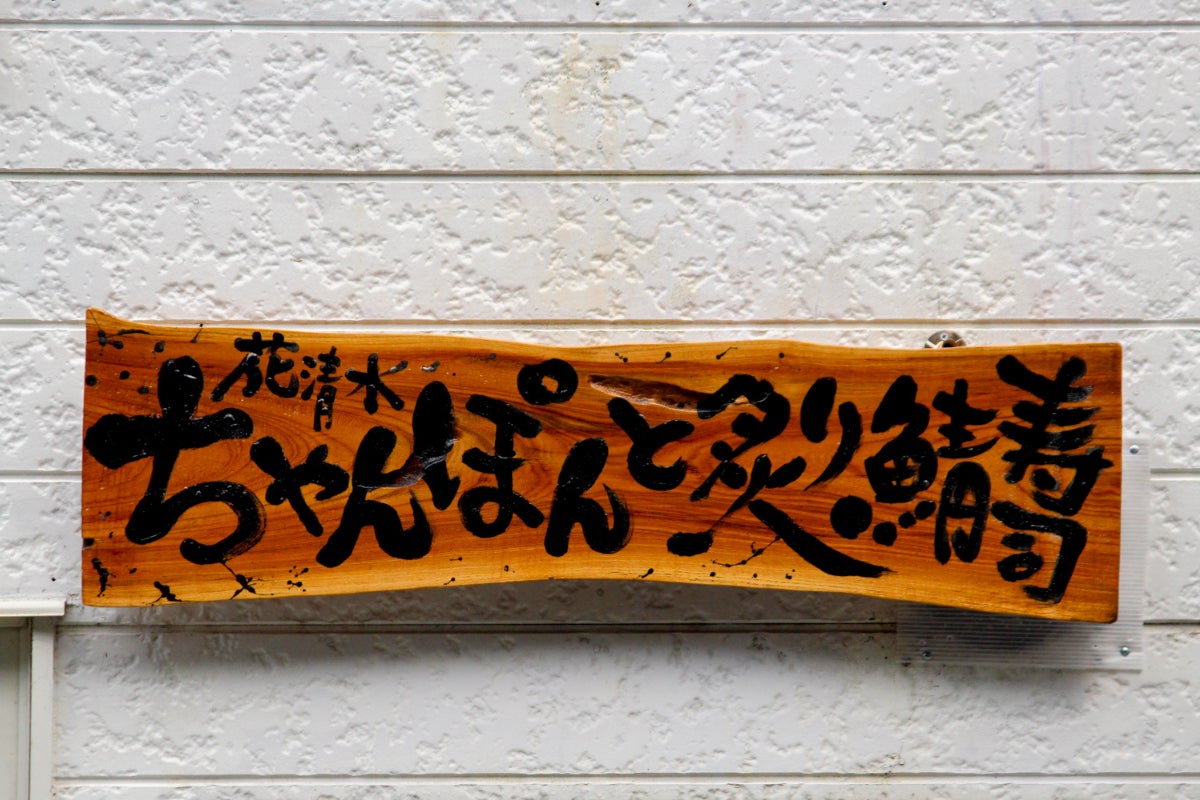 花清水
ちゃんぽんと炙り鯖寿司